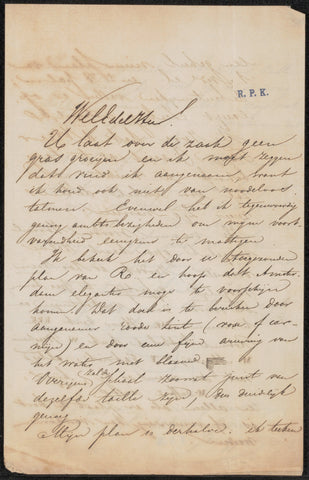 R. P. K.
WelEdelHeer!
U laat over de zaak geen
gras groeijen en ik moet zeggen
dat vind ik aangenaam, want
ik houd ook niets van noodeloos
talmen. Evenwel heb ik tegenwoordig
genoeg ambtsbezigheden om mijne voort-
varendheid eenigzins te matigen
Ik bekeek het door U
plan van R en hoop dat Amster
dam eleganter moge te voorschijn
komen. Dat doel is te bereiken door
aangenamer roode tint (rose of car-
mijn) en door eene fijne arcering van
het water met blaauw.
Overigens zal de schaal zoowat juist van
dezelfde taille zijn, dus duidelijk
genoeg
Mijn plan is derhalve. Ik teeken